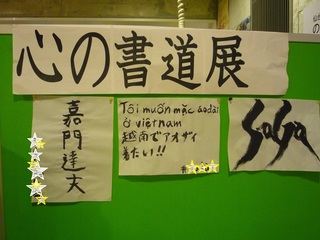 心の書道展
嘉門達夫
Tôi muốn mặc áo dài
ở việtnam
越南でアオザイ
着たい!!
SaGa